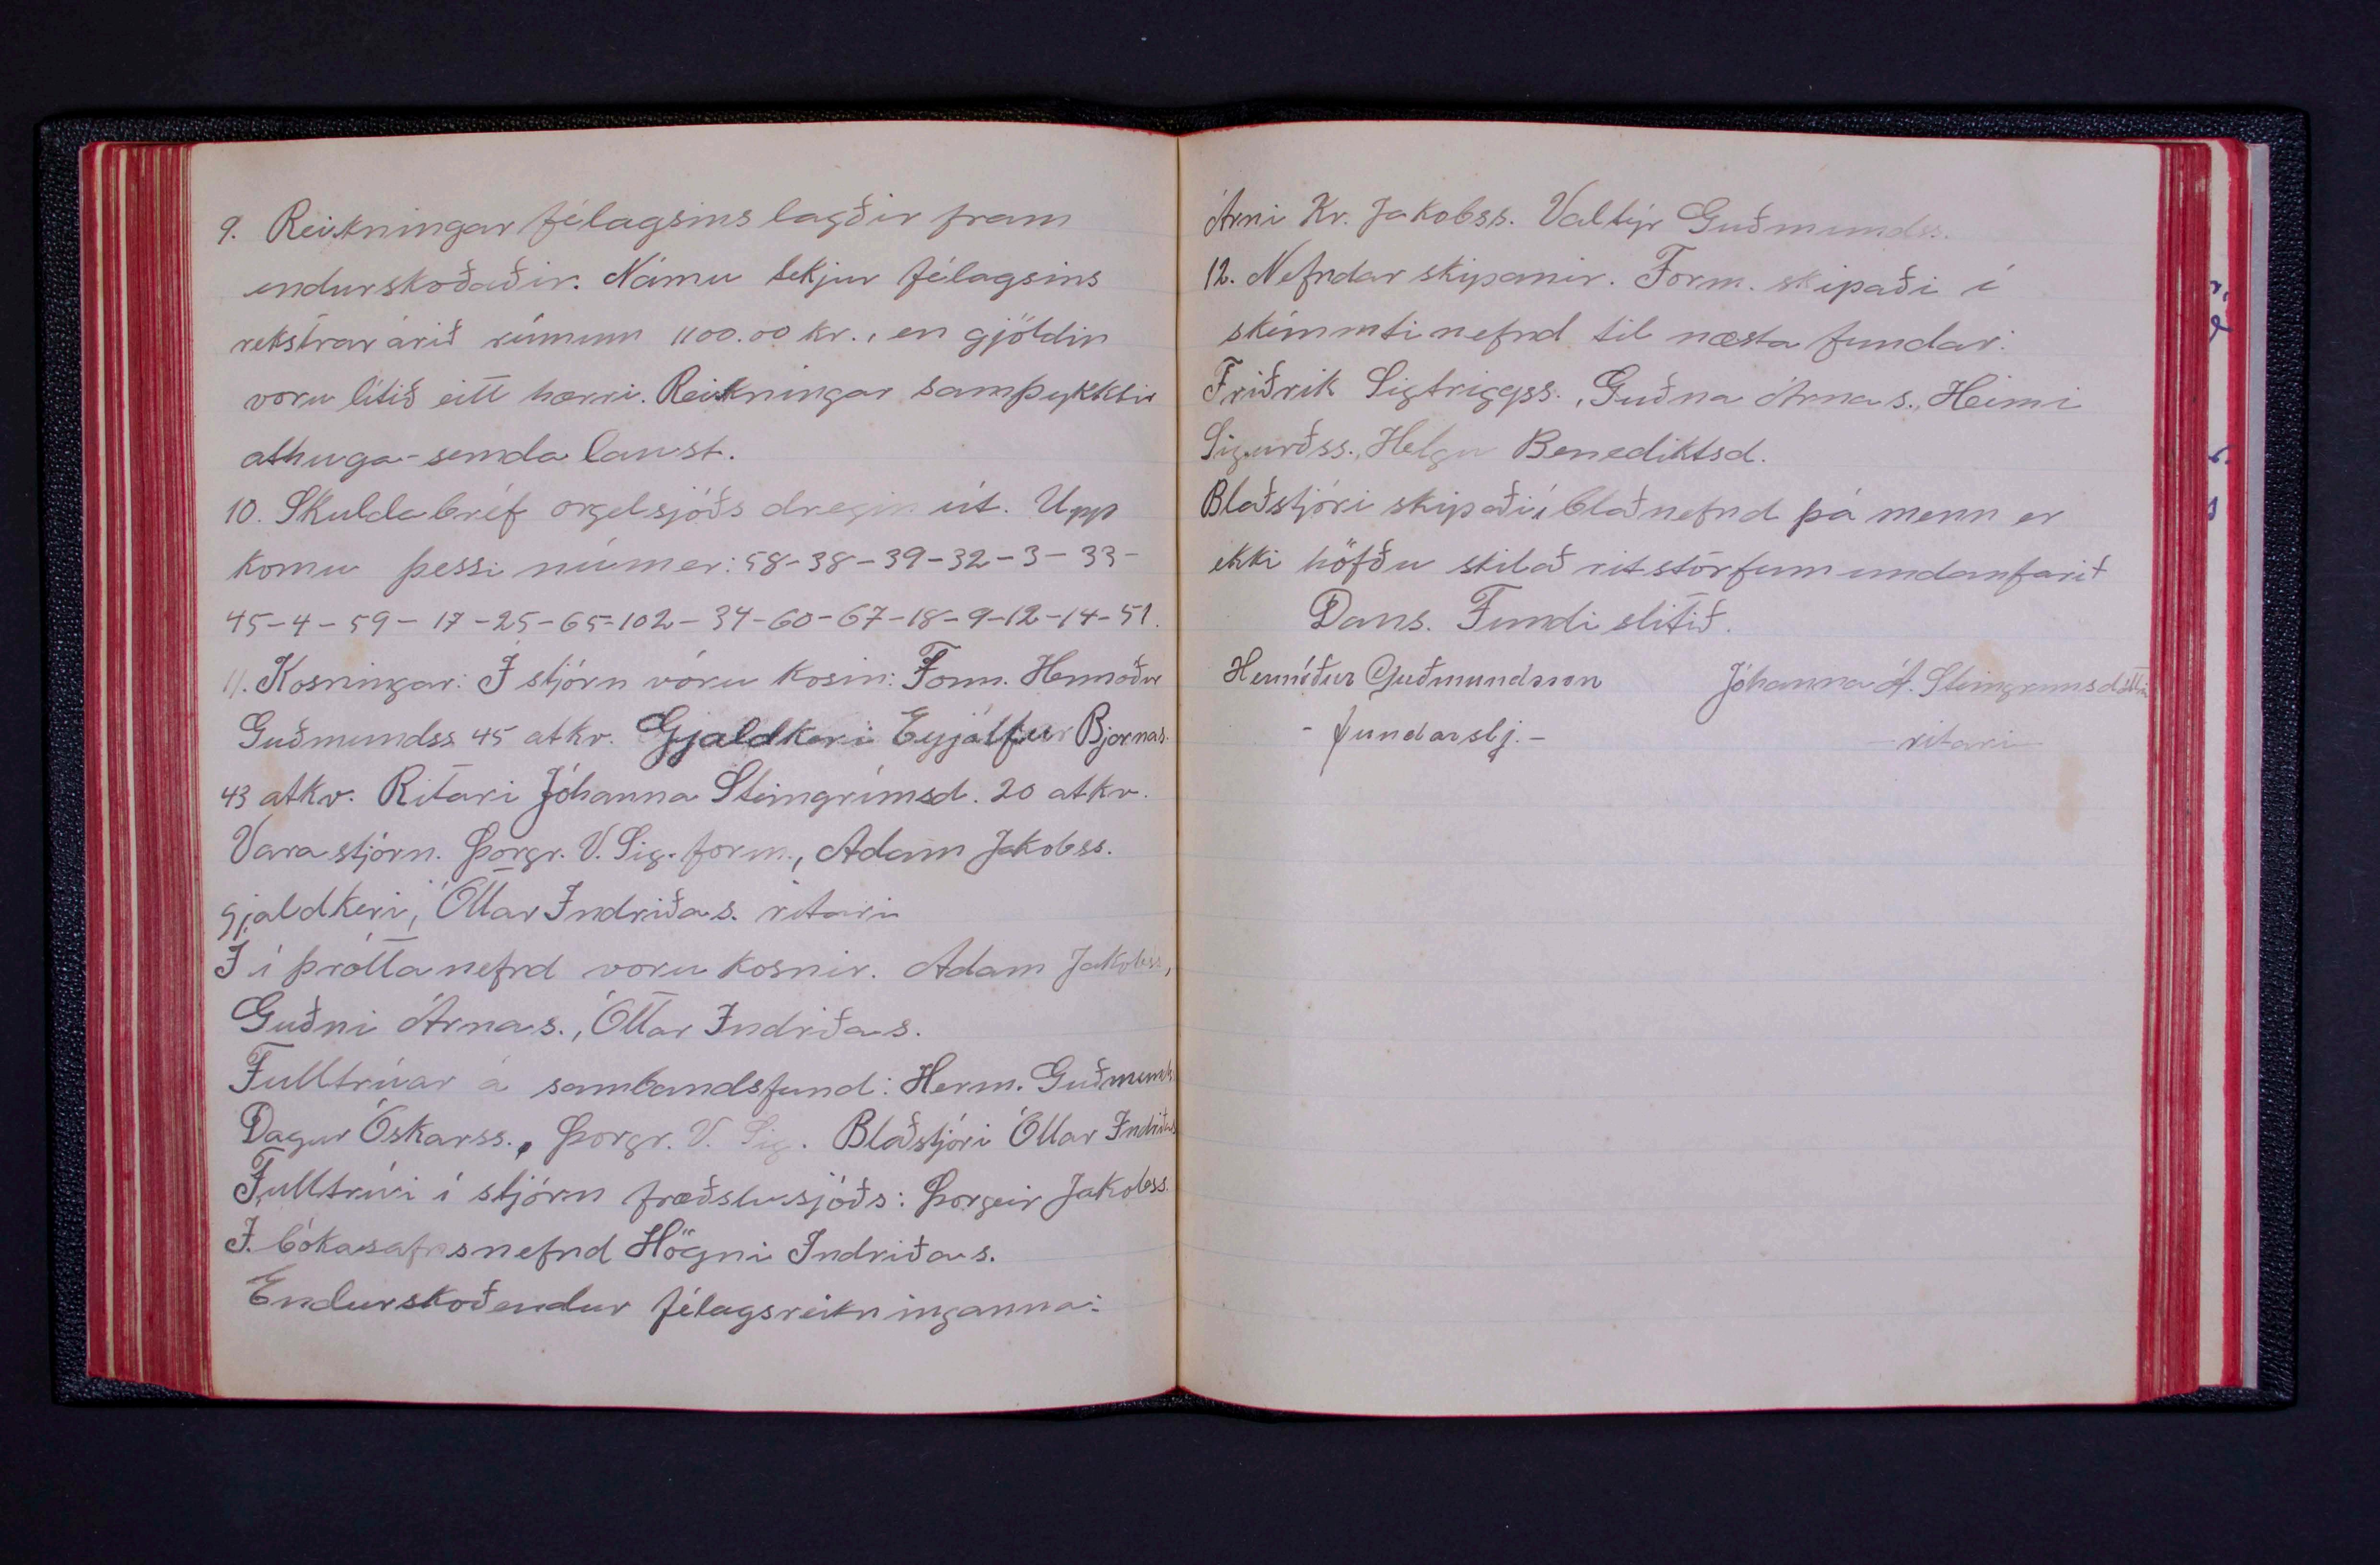 9. Reikningar félagsins lagðir fram
endurskoðaðir. Námu tekjur félagsins
rekstrarárið rúmum 1100.00 kr., en gjöldin
voru lítið eitt hærri. Reikningar samþykktir
athuga-semdalaust.
10. Skuldabréf orgelsjóðs dregin út. Upp
komu þessi númer: 58-38-39-32-3-33-
45-4-59-17-25-65-102-34-60-67-18-9-12-14-51.
11. Kosningar: Í stjórn vóru kosin: Form. Hermóður
Guðmundss 45 atkv. Gjaldkeri Eyjólfur Bjarnas.
43 atkv. Ritari Jóhanna Steingrímsd. 20 atkv.
Varastjórn. Þorgr. V. Sig. form., Adam Jakobss.
gjaldkeri, Óttar Indriðas. ritari
Í íþróttanefnd voru kosnir. Adam Jakobss,
Guðni Árnas., Óttar Indriðas.
Fulltrúar á sambandsfund: Herm. Guðmunds
Dagur Óskarss., Þorgr. V. Sig. Blaðstjóri Óttar Indriðas
Fulltrúi í stjórn fræðslusjóðs: Þorgeir Jakobss.
Í bókasafnsnefnd Högni Indriðas.
Endurskoðendur félagsreikninganna:
Árni Kr. Jakobss. Valtýr Guðmundss.
12. Nefndarskipanir. Form. skipaði í
skémmtinefnd til næsta fundar:
Friðrik Sigtriggss., Guðna Árnas., Heimi
Sigurðss., Helgu Benediktsd.
Blaðstjóri skipaði í blaðnefnd þá menn er
ekki höfðu skilað ritstörfum undanfarit
Dans. Fundi slitið.
Hermóður Guðmundsson Jóhanna Á. Steingrímsdóttir
- fundarstj. - - ritari -